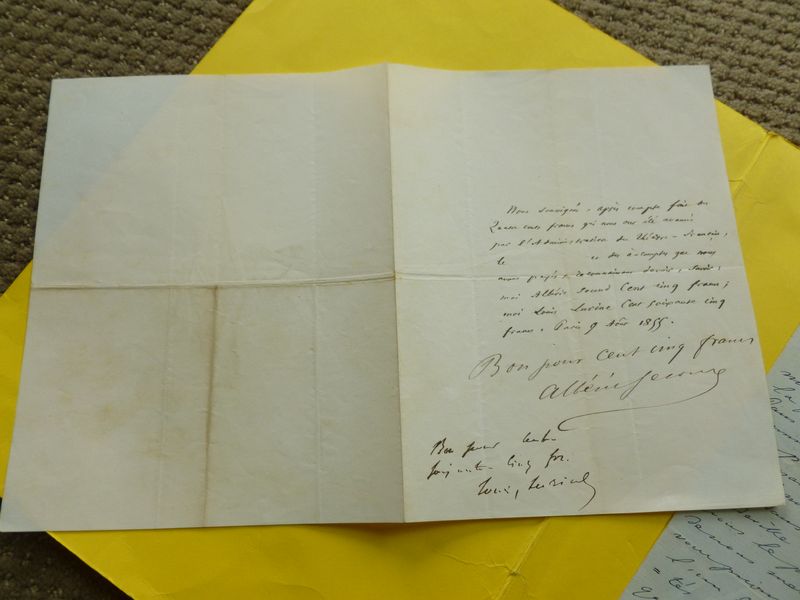 Nous soussignés, après compte fait des
Quatre cents francs qui nous ont été avancés
par l'Administration du Théâtre-Français,
le et des à-comptes que nous
avons payés, reconnaissons devoir, savoir,
moi Albéric Second Cent cinq francs;
moi Louis Lurine Cent soixante cinq
francs. Paris 9 Août 1855.
Bon pour cent cinq francs
Albéric Second
Bon pour cent
soixante cinq frs.
Louis Lurine